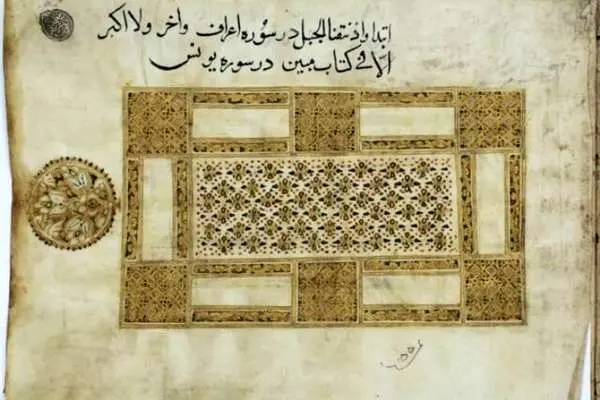 ابتدا واذ نتقنا الجبل در سوره اعراف واخر ولا اکبر
الا فی کتاب مبین در سوره یونس